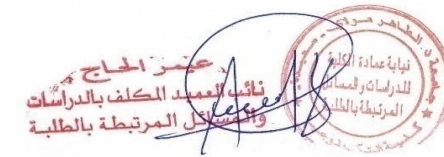 عمر الحاج
نائب العميد المكلف بالدراسات
والمسائل المرتبطة بالطلبة
نيابة عمادة الكلية
للدراسات والمسائل
المرتبطة بالطلبة